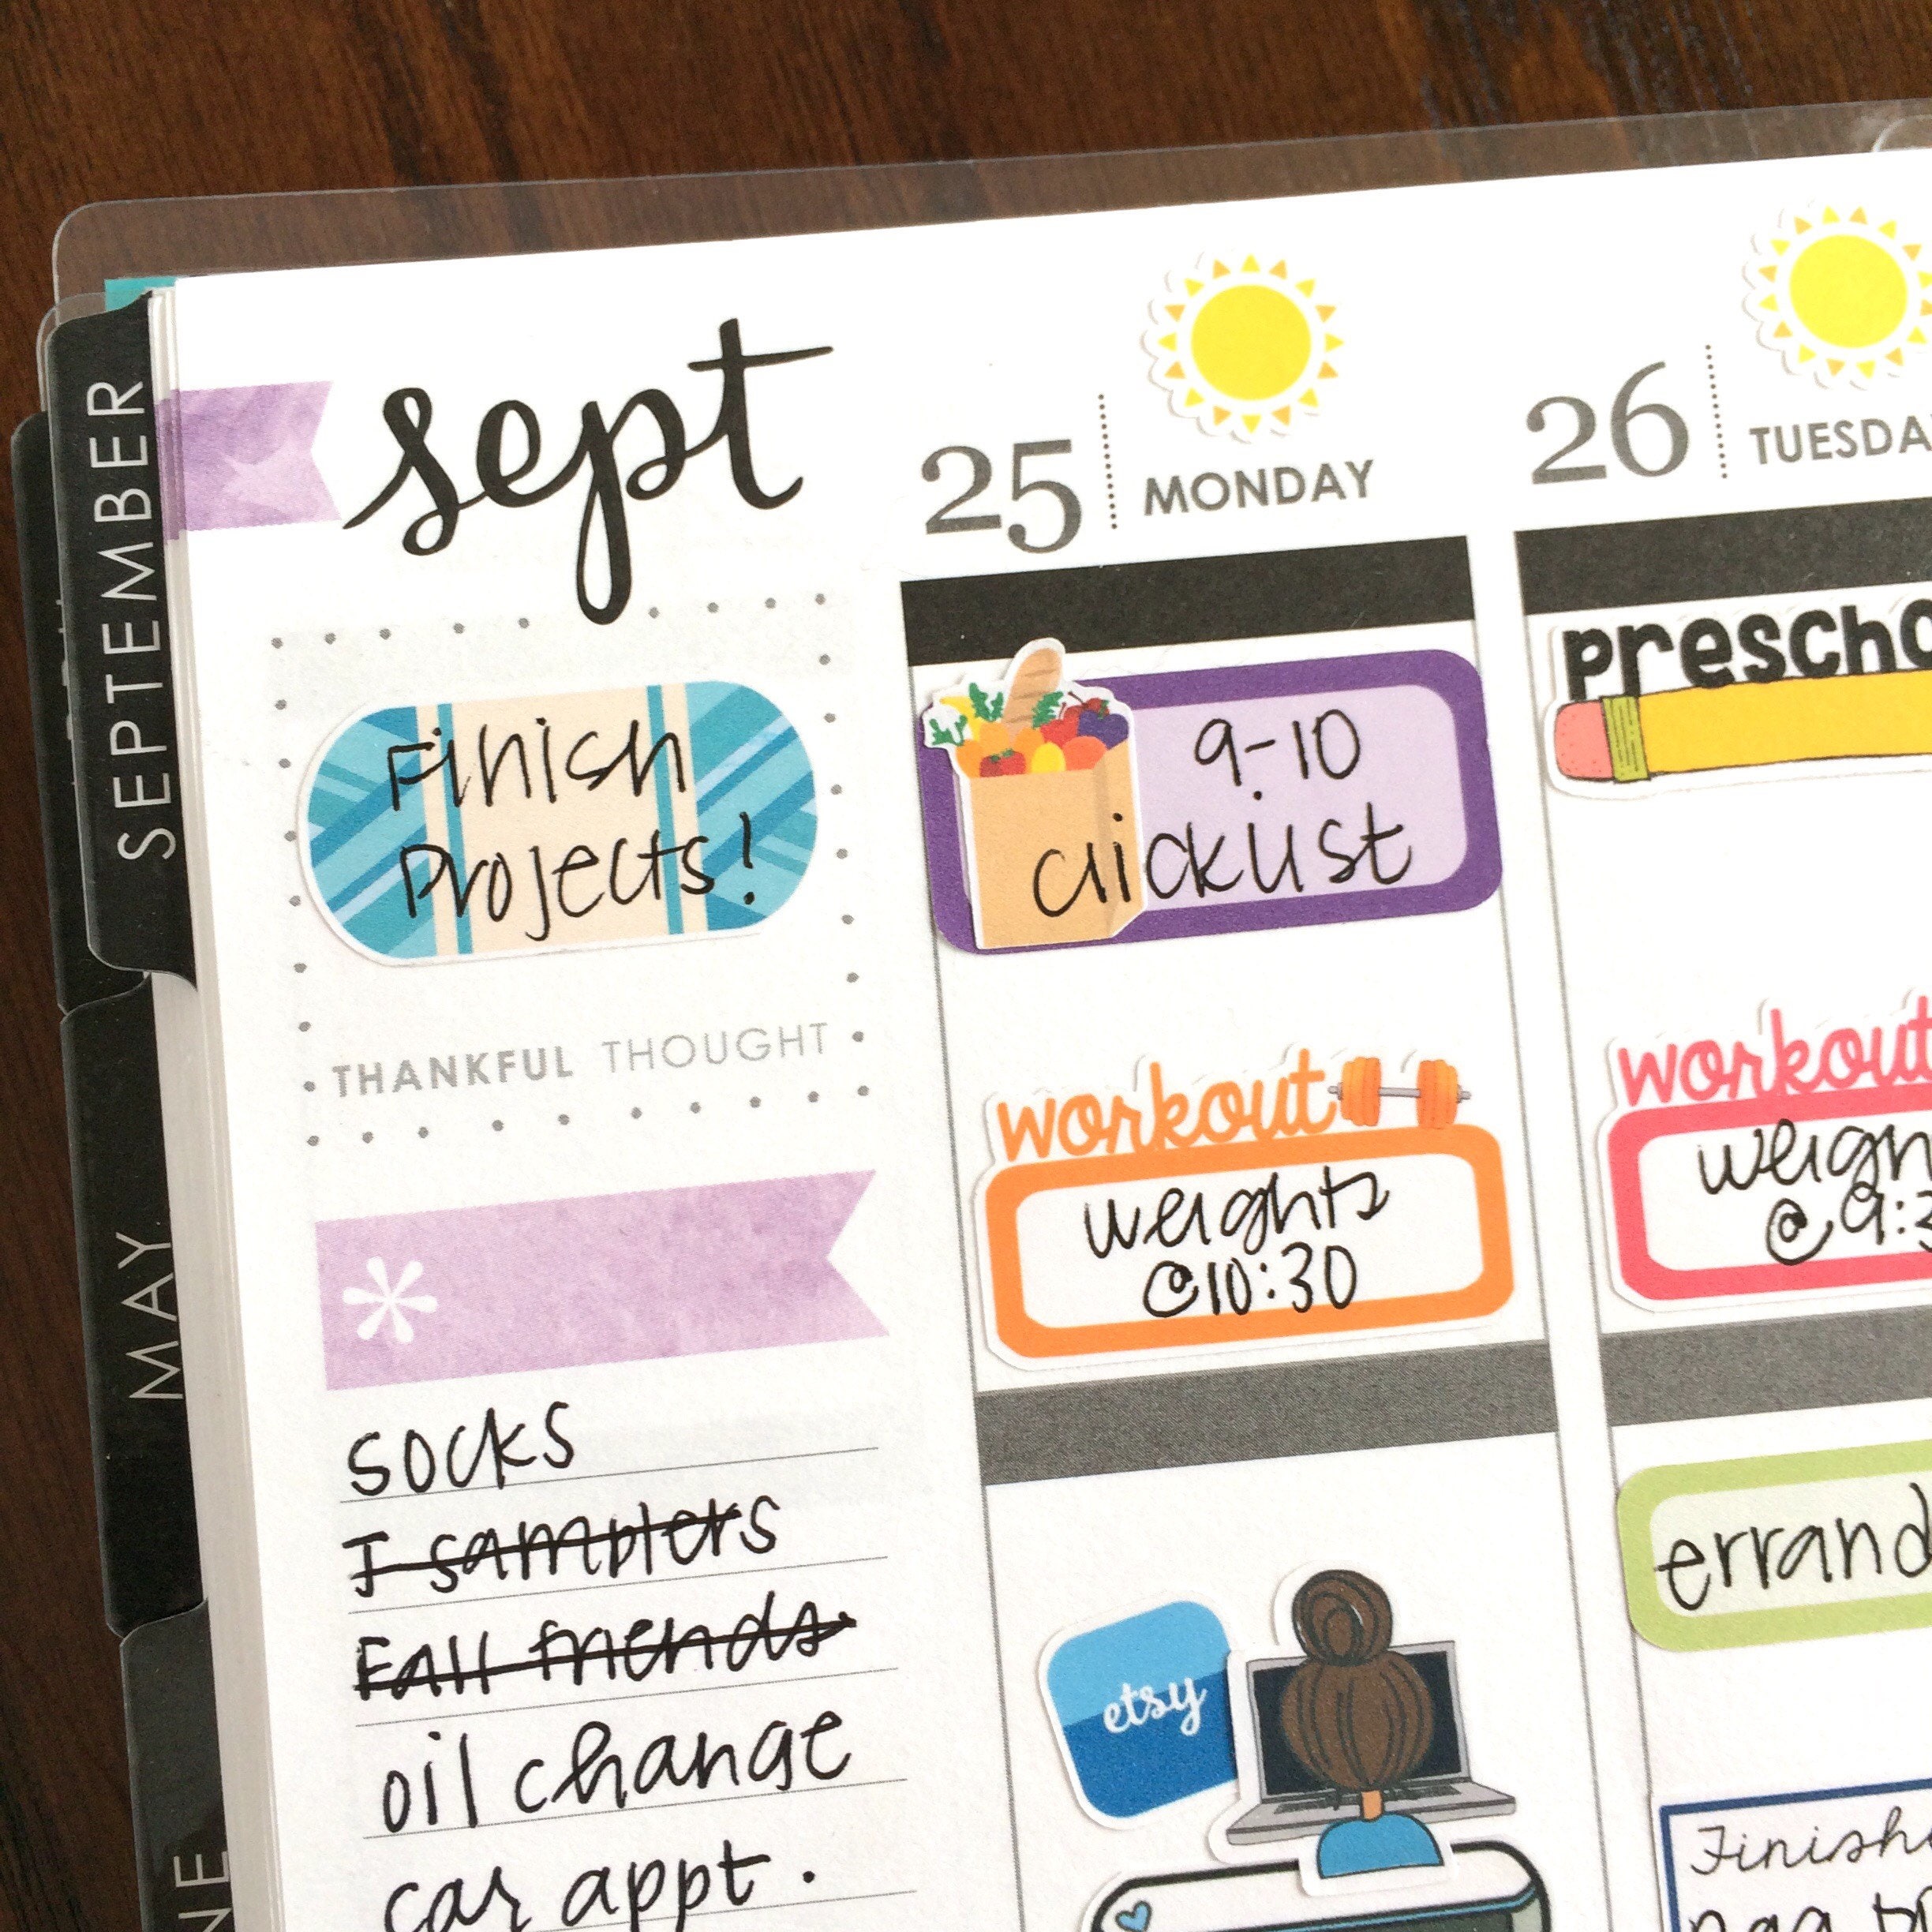 SEPTEMBER
MAY
sept
Finish
Projects!
THANKFUL THOUGHT
*
socks
J samplers
Fall friends
oil change
car appt.
25 MONDAY
9-10
clicklist
workout
weights
@10:30
etsy
26 TUESDA
prescho
workout
weigh
@9:3
errand
Finish